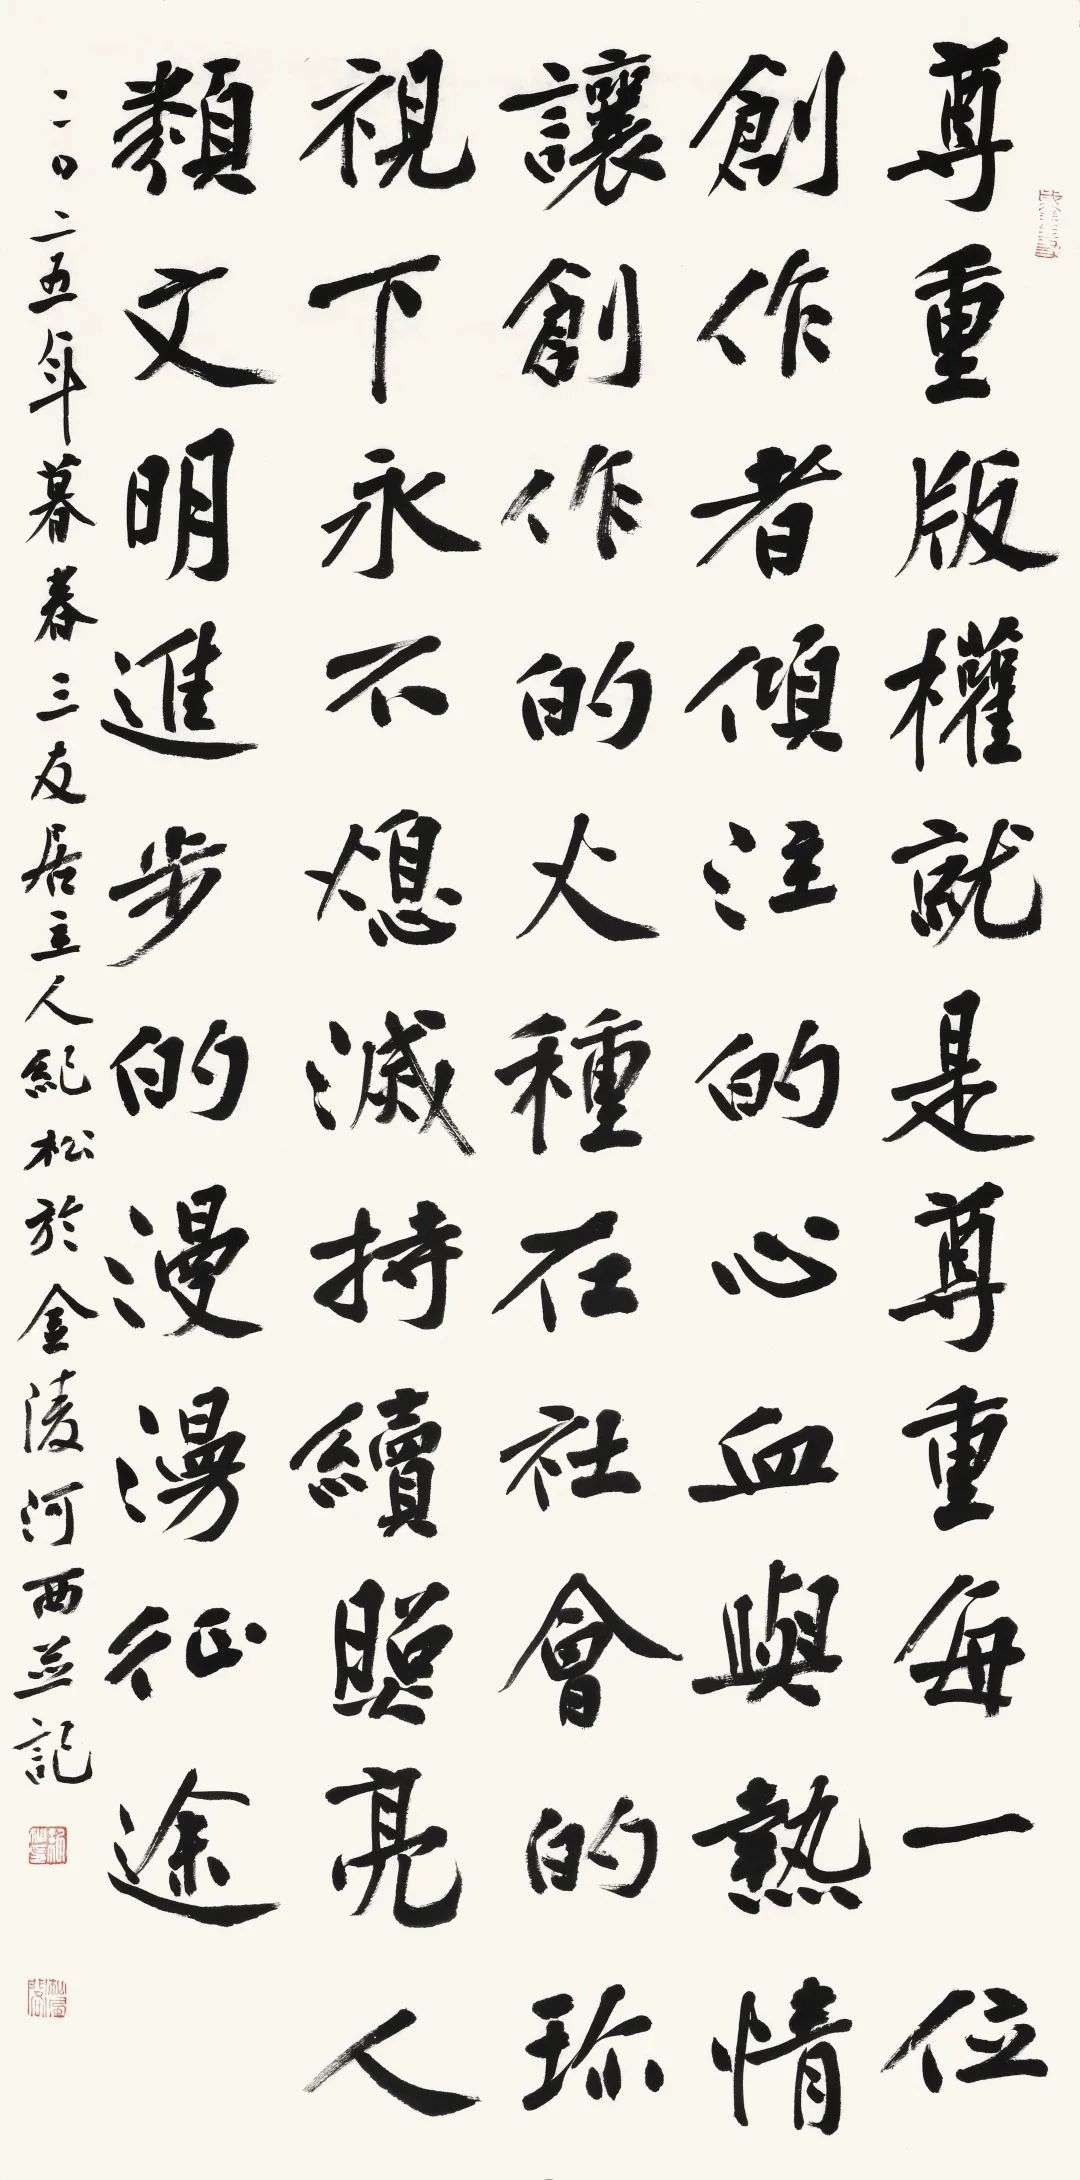 尊重版權就是尊重每一位
創作者傾注的心血與熱情
讓創作的火種在社會的珎
視下永不熄滅持續照亮人
類文明進步的漫漫征途
二〇二五年暮春三友居主人紀松於金陵河西並記